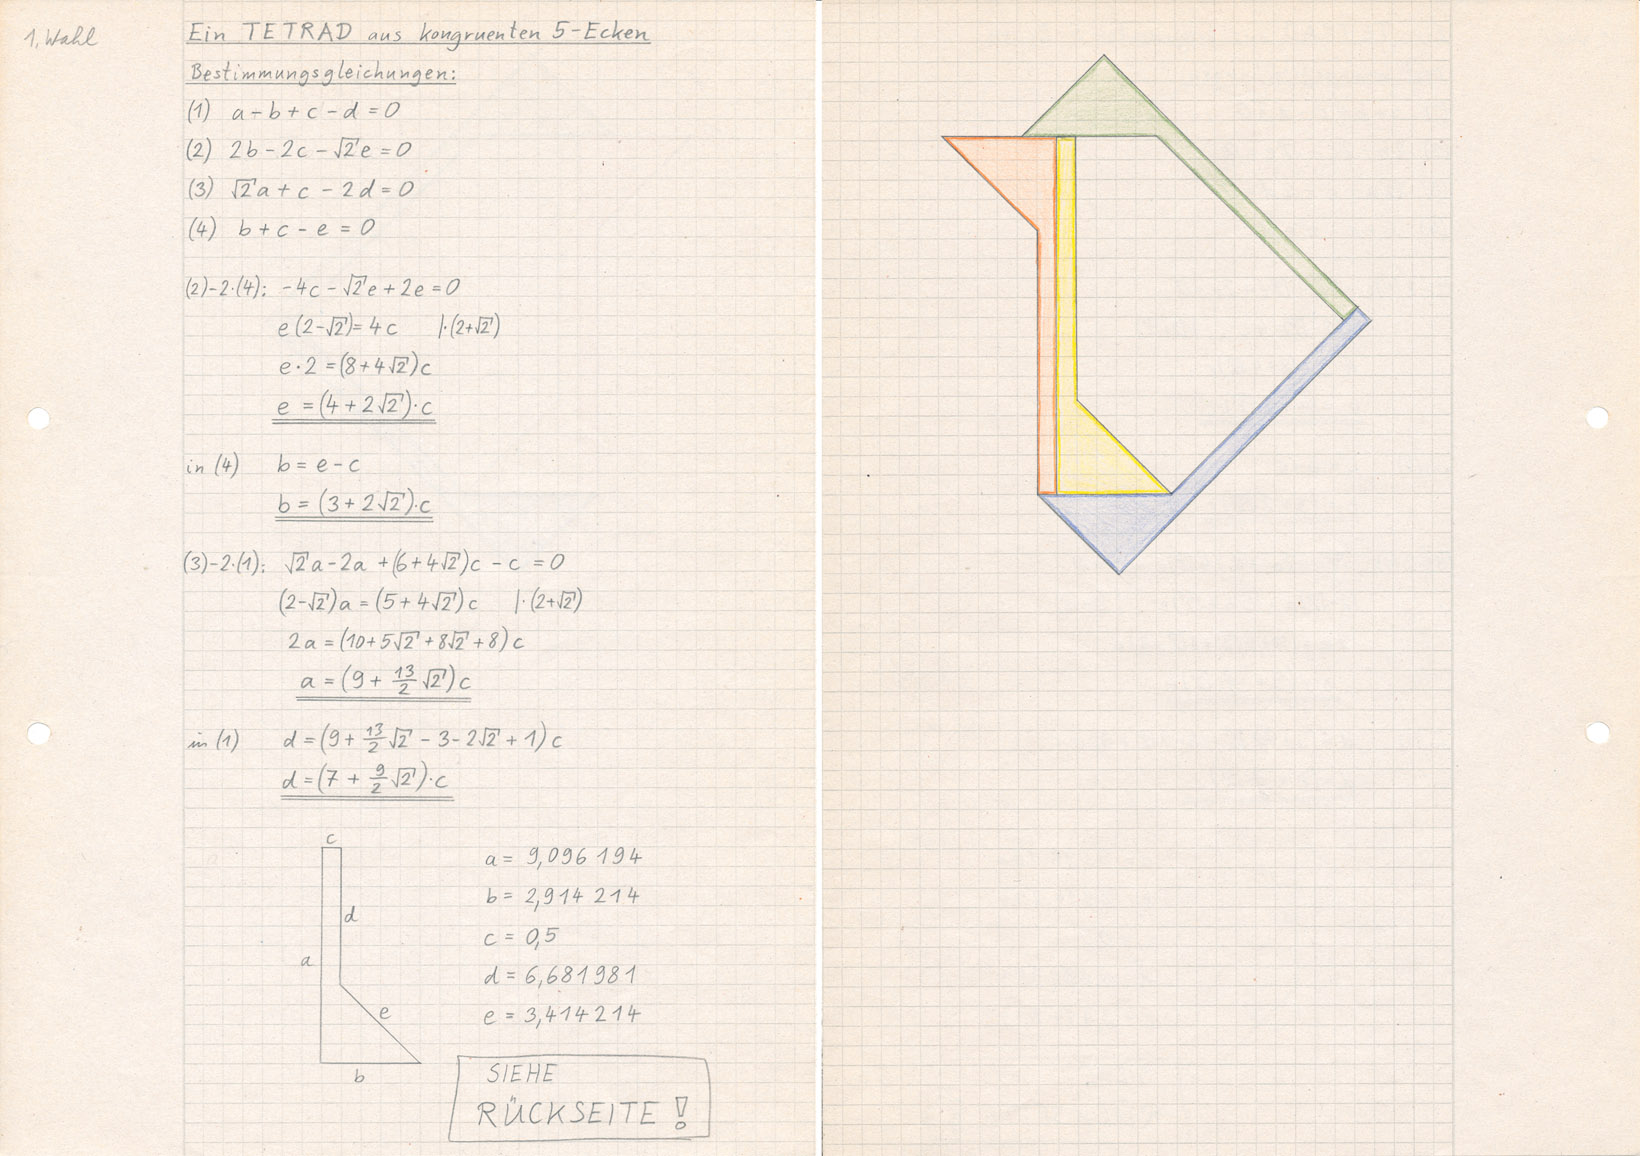 1. Wahl
Ein TETRAD aus kongruenten 5-Ecken
Bestimmungsgleichungen:
(1) a - b + c - d = 0
(2) 2b - 2c - √2 e = 0
(3) √2 a + c - 2d = 0
(4) b + c - e = 0
(2)-2·(4): -4c - √2 e + 2e = 0
e (2-√2) = 4c |·(2+√2)
e·2 = (8+4√2)c
e = (4+2√2)·c
in (4) b = e - c
b = (3+2√2)·c
(3)-2·(1): √2 a - 2a + (6+4√2)c - c = 0
(2-√2)a = (5+4√2)c |·(2+√2)
2a = (10+5√2+8√2+8)c
a = (9 + 13/2 √2)c
in (1) d = (9 + 13/2 √2 - 3 - 2√2 + 1)c
d = (7 + 9/2 √2)·c
c
d
a
e
b
a = 9,096 194
b = 2,914 214
c = 0,5
d = 6,681 981
e = 3,414 214
SIEHE
RÜCKSEITE !